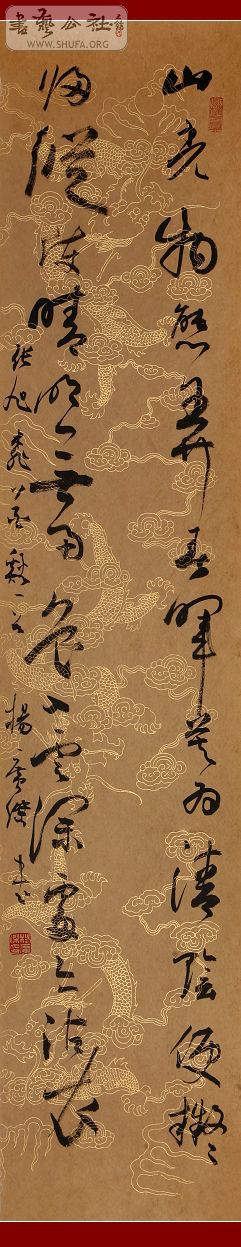 書藝公社
WWW.SHUFA.ORG
山光物態弄春暉莫為清陰便擬
歸縱使晴明無雨色入雲深處亦沾衣
張旭 楊